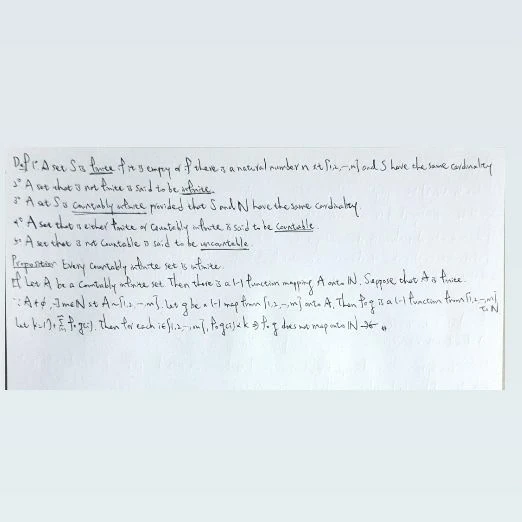 Def 1° A set S is finite if it is empty or if there is a natural number n st {1,2,-,n} and S have the same cardinality
2° A set that is not finite is said to be infinite.
3° A set S is countably infinite provided that S and N have the same cardinality.
4° A set that is either finite or countably infinite is said to be countable.
5° A set that is not countable is said to be uncountable.
Proposition Every countably infinite set is infinite.
pf Let A be a countably infinite set. Then there is a 1-1 function mapping A onto N. Suppose that A is finite.
∵ A≠∅, ∃m∈N st A~{1,2,-,m}. Let g be a 1-1 map from {1,2,-,m} onto A. Then f∘g is a 1-1 function from {1,2,-,m} to N
Let k= f∘g(i). Then for each i∈{1,2,-,m}, f∘g(i)<k ⇒ f∘g does not map onto N